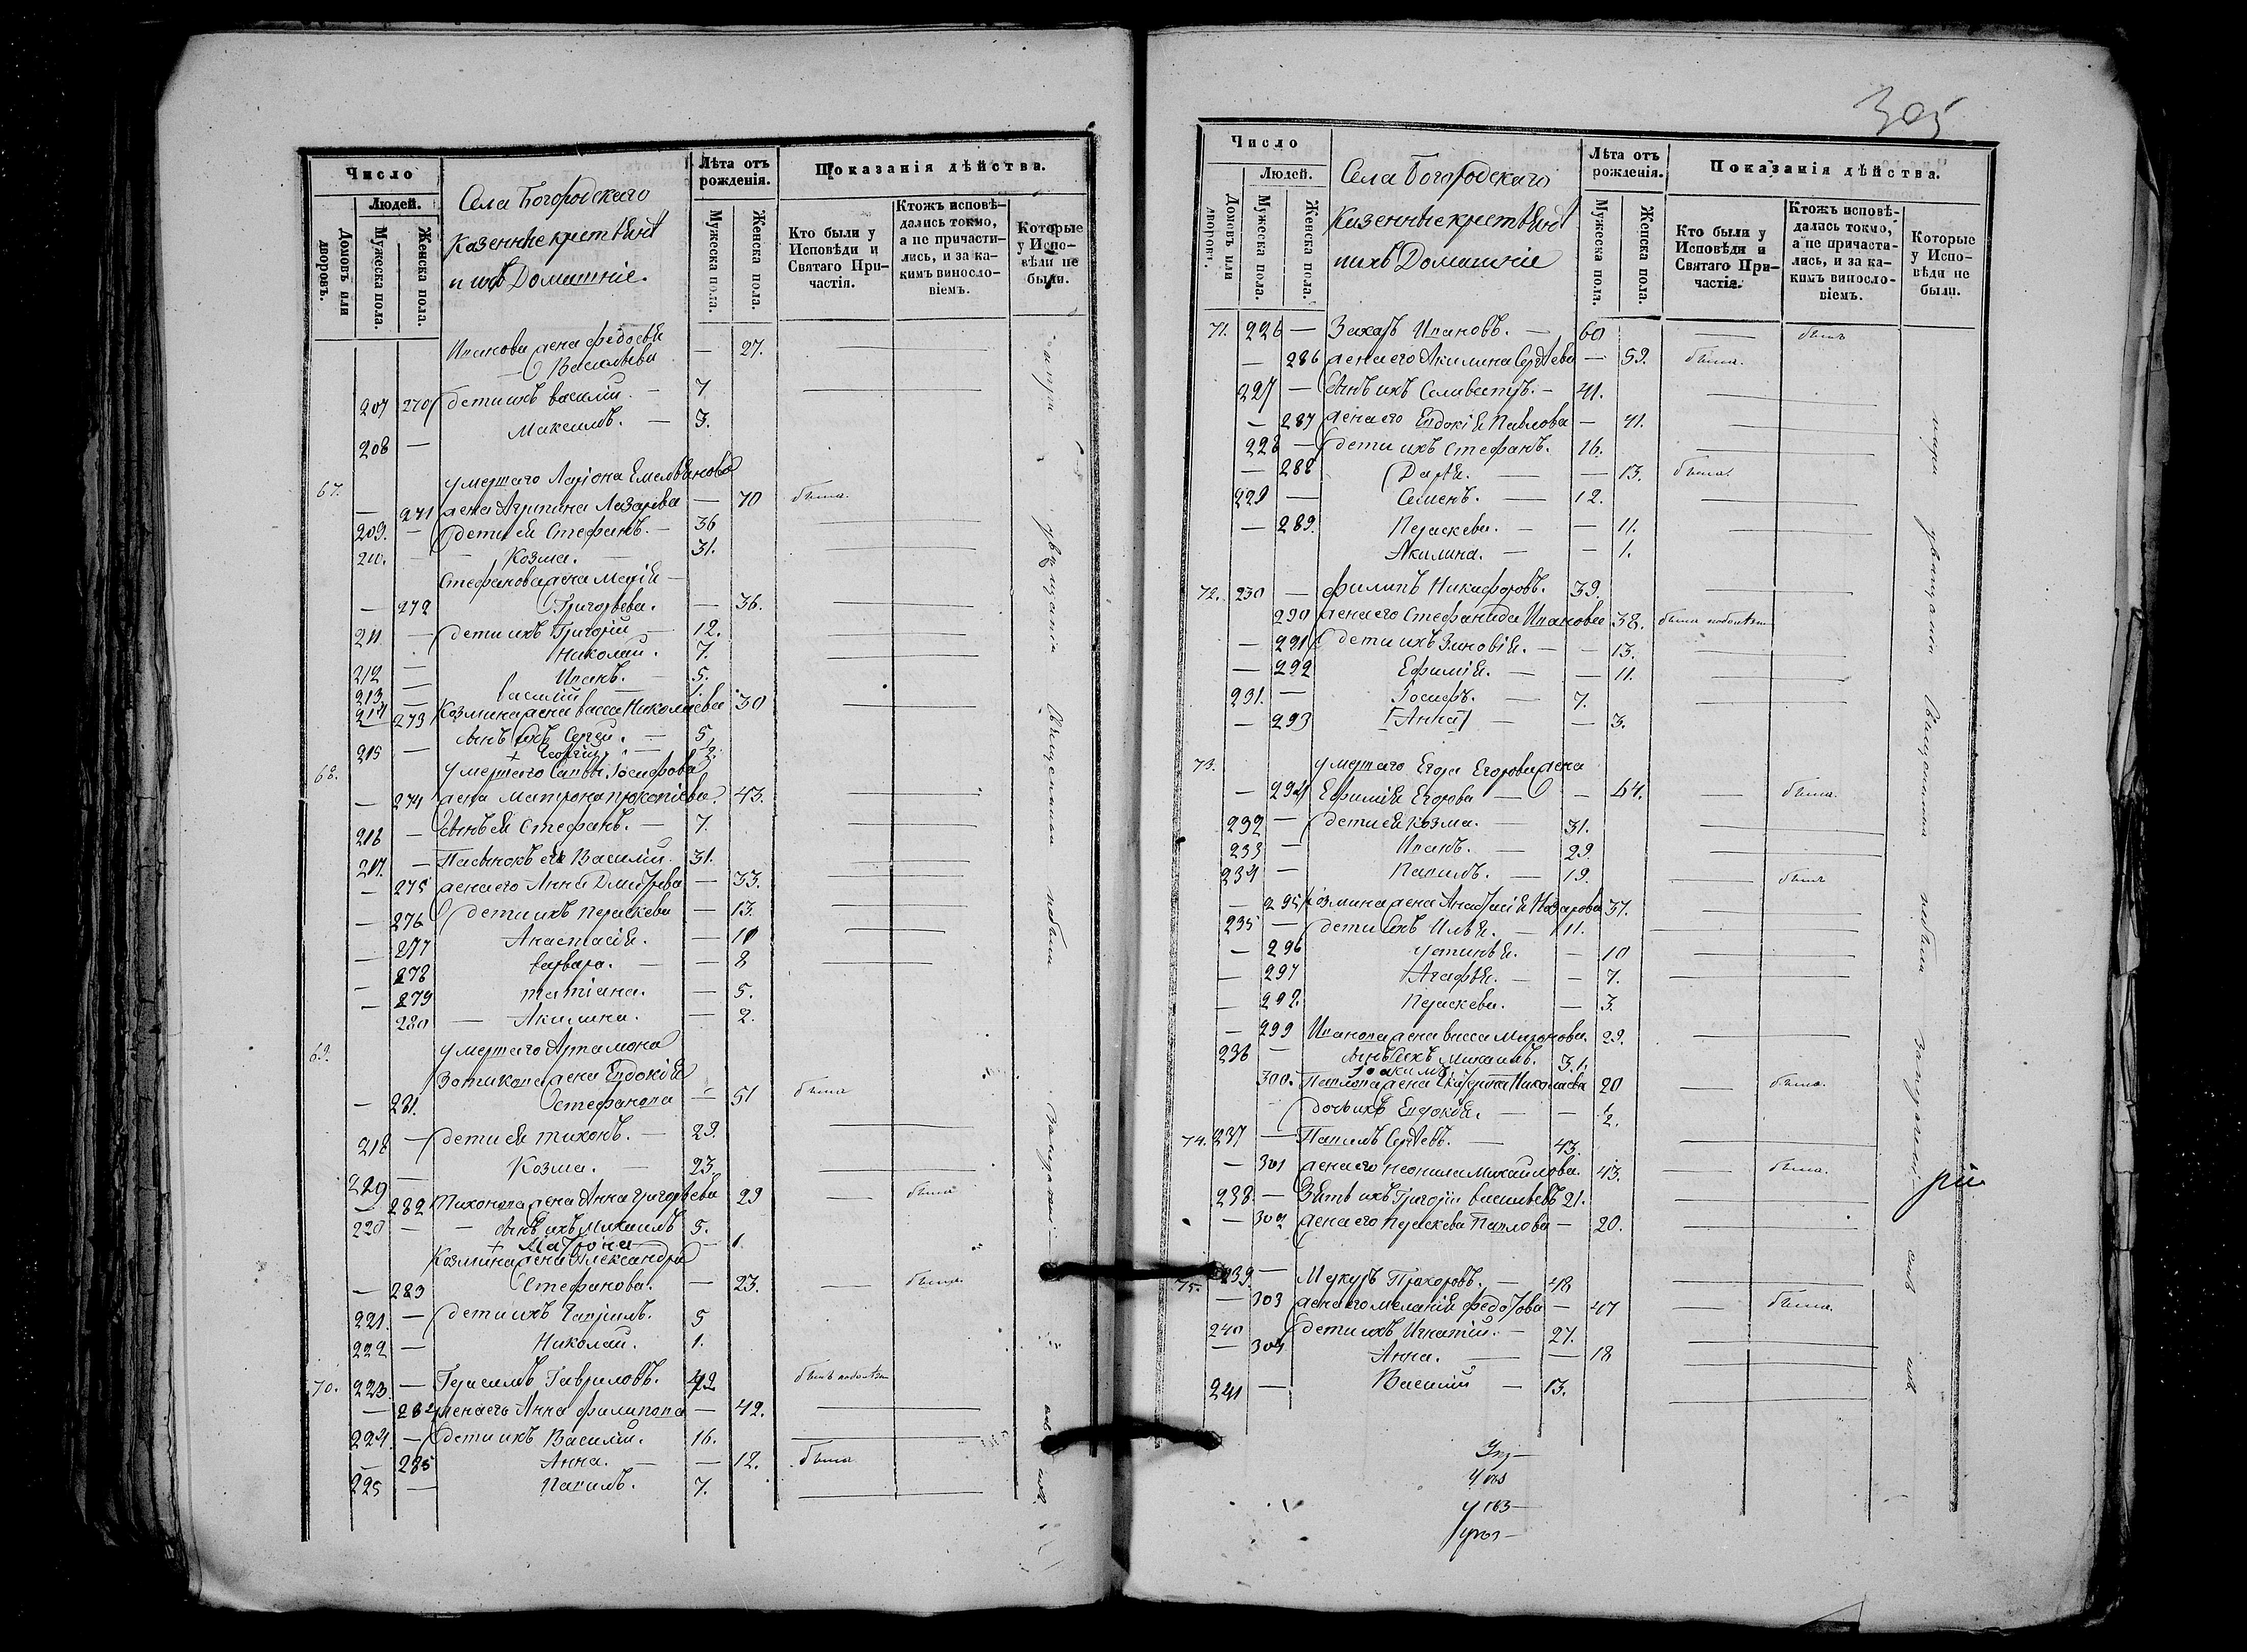 Число
Людей.
Домовъ или дворовъ.
Мужеска пола.
Женска пола.
Села Богородскаго
Казенные крестьяне
и ихъ Домашніе.
Лѣта отъ рожденія.
Мужеска пола.
Женска пола.
Показанія дѣйства.
Кто были у Исповѣди и Святаго Причастія.
Ктожъ исповѣдались токмо, а не причастились, и за какимъ винословіемъ.
Которые у Исповѣди не были.
Иванова жена Федосья
Васильева — 27.
207 270 дети ихъ Василий. — 7
208 — Максимъ. — 3.
67. умершаго Лариона Емельянова
— 271 жена Агрипина Лазарева — 70 была.
209. — дети ея Стефанъ. — 36
210. — Козма. — 31.
Стефанова жена Марія
— 272 Григорьева. — 36.
211. — дети ихъ Григорій — 12.
Николай. 7.
212 — Иванъ. — 5.
213 — Василій — 1.
214 — 273 Козмина жена Васса Николаева 30
Сынъ ихъ Сергей. — 5
215 — + Георгій — ½.
68. умершаго Саввы Іосифова
— 274 жена Матрона Прокопіева. 43.
216 — сынъ ея Стефанъ. — 7.
217. — Пасынокъ ея Василій. 31.
— 275 жена его Анна Дмитрева — 33.
— 276 дети ихъ Параскева — 13.
— 277 Анастасія. — 10
— 278 Варвара. — 8
— 279 Татіана. — 5.
280 — Акилина. — 2.
69. умершаго Артамона
Зотикова жена Евдокія
— 281. Стефанова — 51 была
218 — дети ея Тихонъ. — 29.
219 — Козма. — 23.
— 282 Тихонова жена Анна Григорьева 29 — была
220 — Сынъ ихъ Михаилъ 5.
+ Матрона — 1.
Козмина жена Александра
— 283 Стефанова. — 23. — была
221. — дети ихъ Гавріилъ. 5
222 — Николай. 1.
70. 223. — Герасимъ Гавриловъ. 42
— 284 жена его Анна Филипова — 42.
224. — дети ихъ Василій. 16.
— 285 Анна. — 12. была
225 — Павелъ. 7.
305
Число
Людей.
Домовъ или дворовъ.
Мужеска пола.
Женска пола.
Села Богородскаго
Казенные крестьяне
и ихъ Домашніе
Лѣта отъ рожденія.
Мужеска пола.
Женска пола.
Показанія дѣйства.
Кто были у Исповѣди и Святаго Причастія.
Ктожъ исповѣдались токмо, а не причастились, и за какимъ винословіемъ.
Которые у Исповѣди не были.
71. 226 — Захаръ Ивановъ. — 60 — былъ
— 286 жена его Акилина Сергѣева — 59. была.
227 — Сынъ ихъ Селивестръ. — 41.
— 287 жена его Евдокія Павлова — 41.
228 — дети ихъ Стефанъ. 16.
— 288 Дарья. — 13. была.
229 — Семенъ. — 12.
— 289. Параскева. — 11.
Акилина. — 1.
72. 230 — Филипъ Никифоровъ. 39.
290 жена его Стефанида Иванова 38.
— 291 дети ихъ Зиновія. — 13.
— 292 Ефимія. — 11.
231. — Іосифъ. — 7.
— 293 [Анна] — 3.
73. умершаго Егора Егорова жена
— 294 Ефимія Егорова — 64. — была.
232 — дети ея Козма. — 31.
233 — Иванъ. — 29.
234 — Павелъ. — 19. былъ
— 295 Козмина жена Анастасія Назарова 37.
235 — дети ихъ Илья. — 11.
— 296 Устинья. — 10
— 297 Агафья. — 7.
— 298. Параскева. — 3.
— 299 Иванова жена Васса Миронова. 29.
236 — Сынъ ихъ Михаилъ. 3.
Іоакимъ 1.
300. Павлова жена Екатерина Николаева 20 — была.
дочь ихъ Евдокія. — ½.
74. 237 — Павелъ Сергѣевъ. — 43.
— 301 жена его Неонила Михайлова. 43. — была.
238. — Зять ихъ Григорій Васильевъ 21.
— 302 жена его Параскева Павлова — 20.
75. 239. — Меркуръ Прохоровъ. — 48
— 303 жена его Меланія Федотова — 47 — была.
240 — дети ихъ Игнатій. — 27.
— 304 Анна. — 18
241 — Василій — 13.